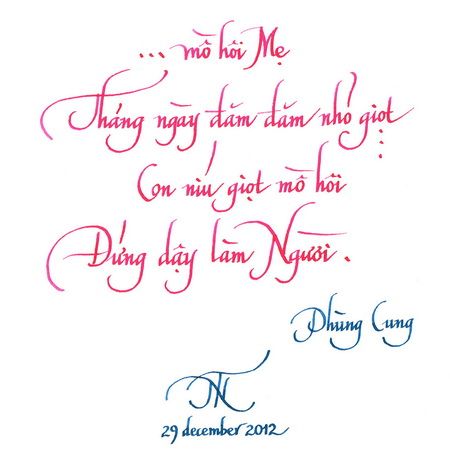 ... mồ hôi Mẹ
Tháng ngày đăm đăm nhỏ giọt ...
Con níu giọt mồ hôi
Đứng dậy làm Người.
Phùng Cung
29 december 2012